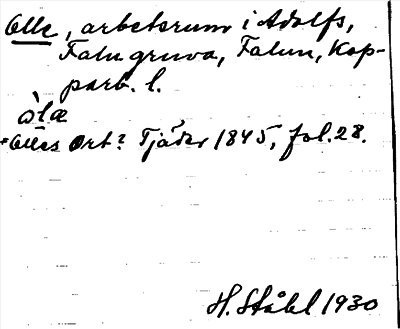 Olle, arbetsrum i Adolfs,
Falu gruva, Falun, Kop-
parb. l.
òlæ
*Olles Ort? Tjäder 1845, fol. 28.
H. Ståhl 1930